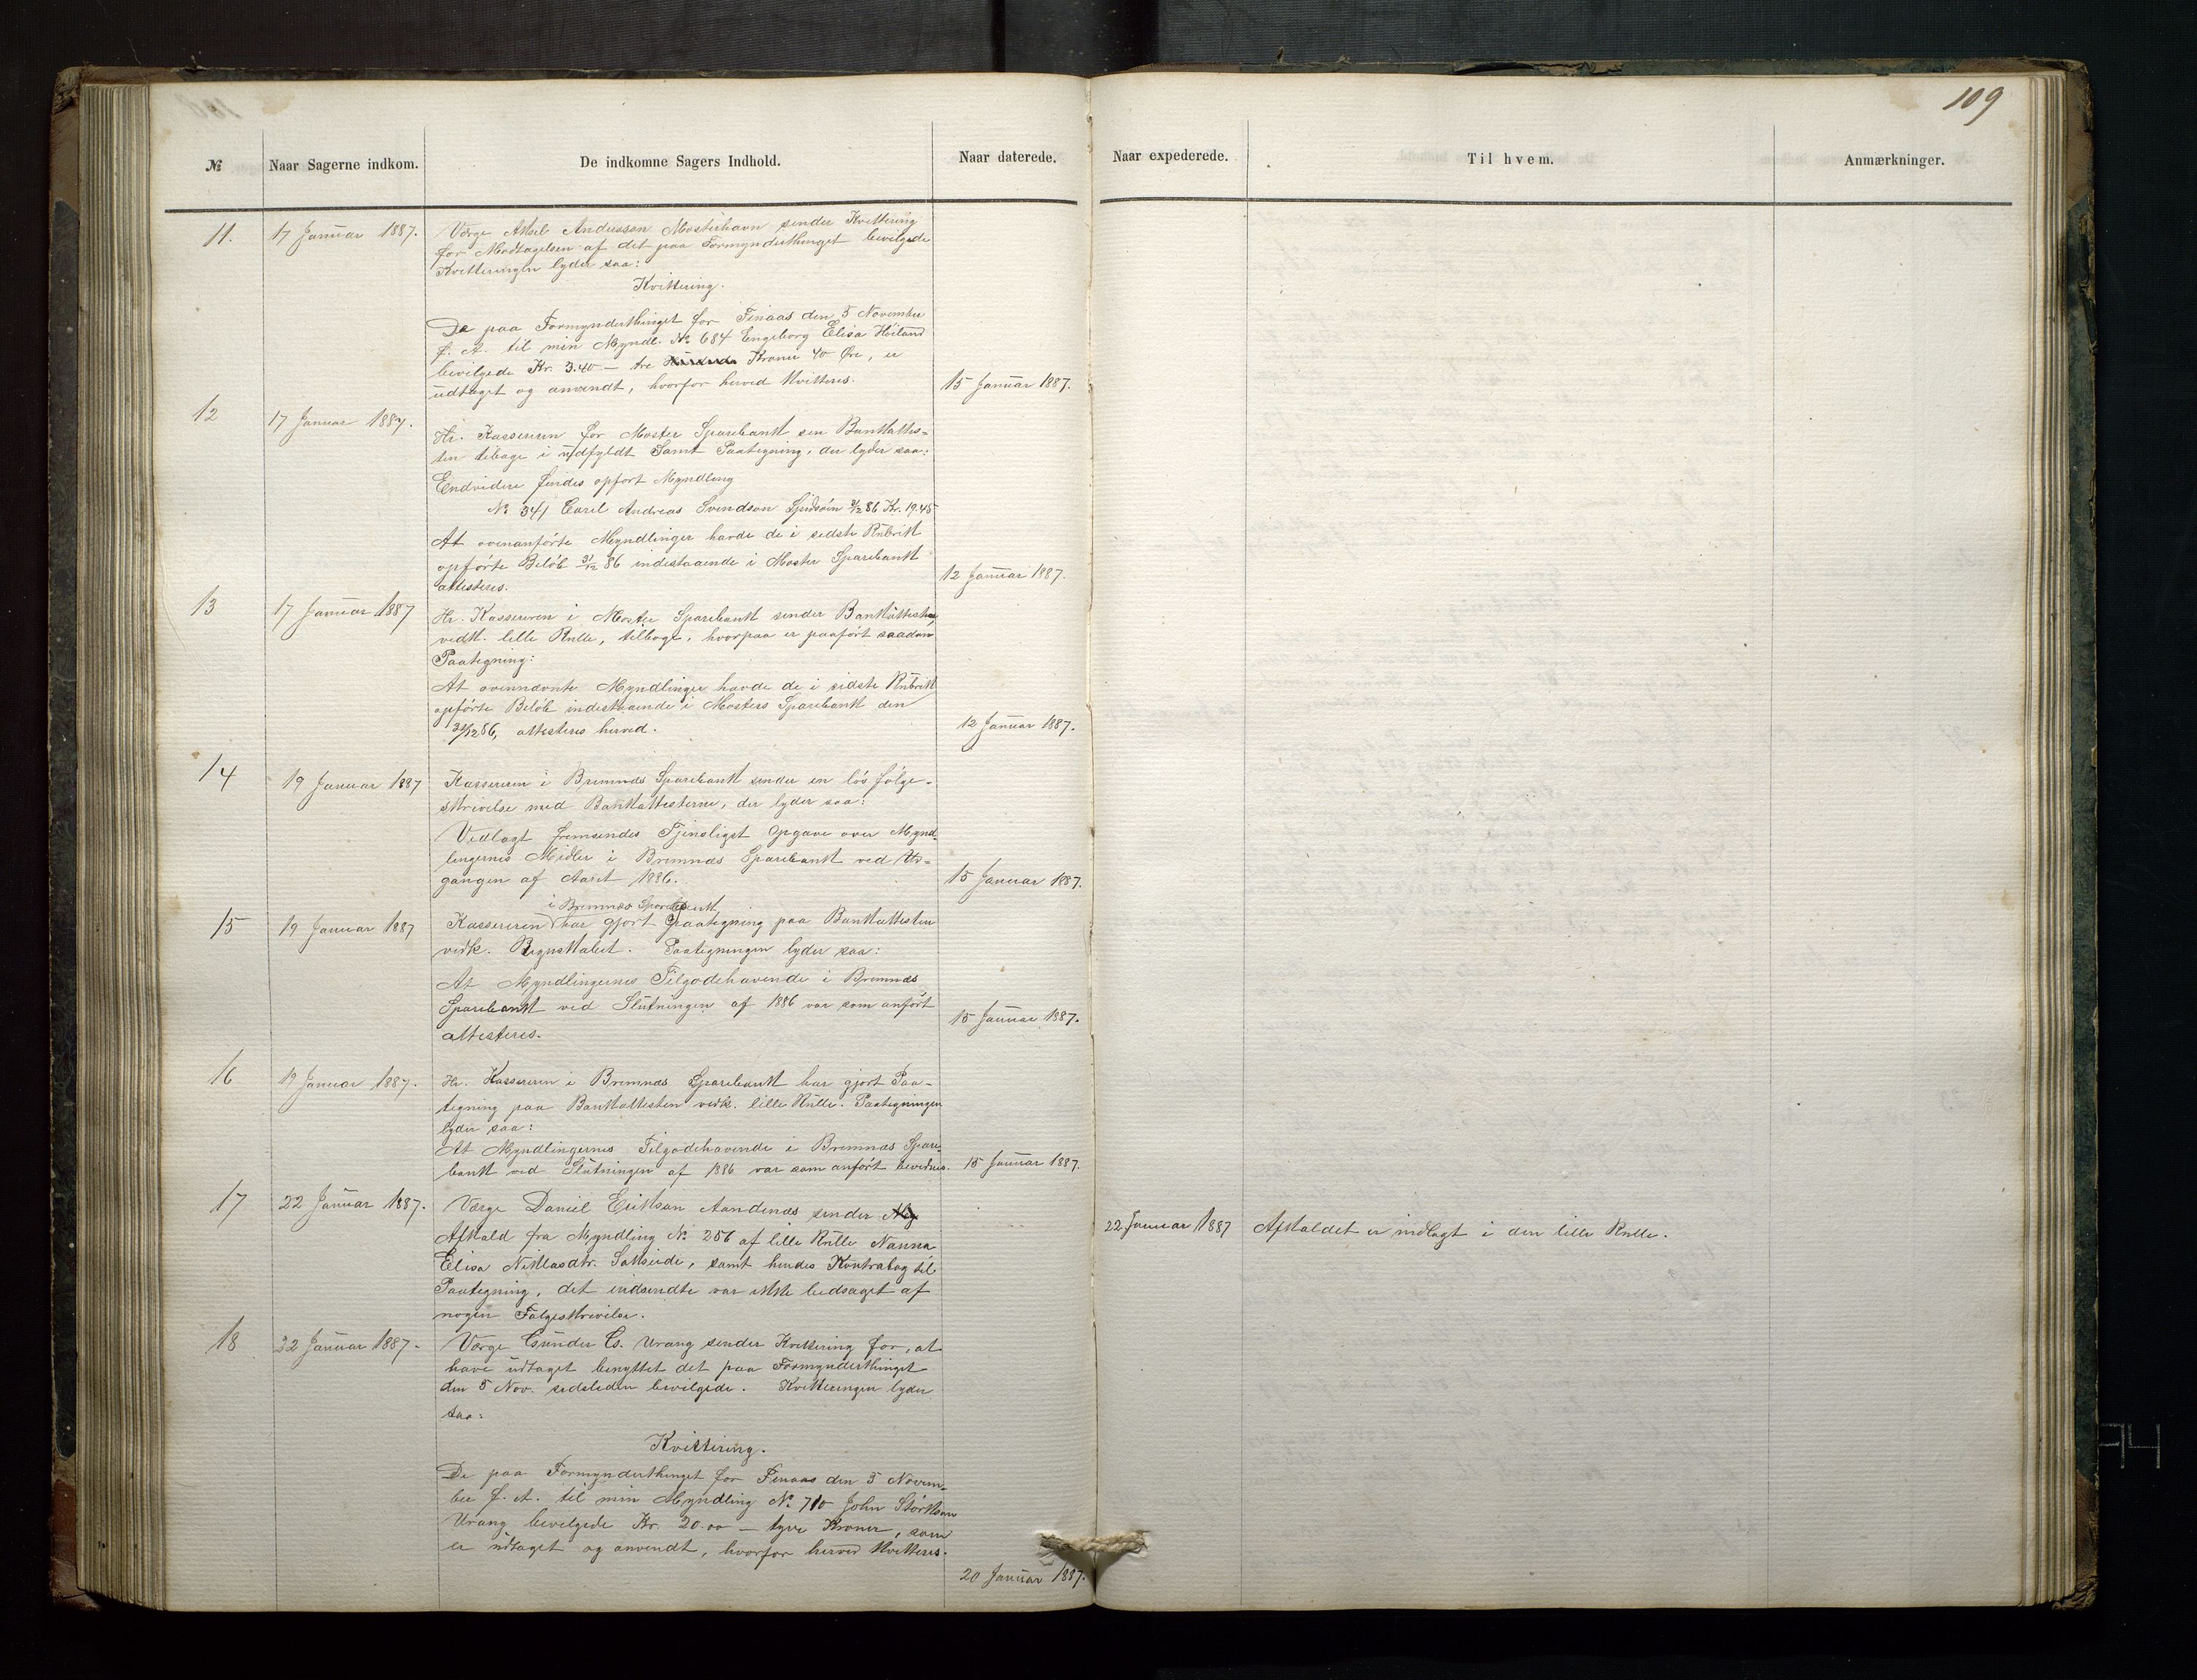 109
№ Naar Sagerne indkom. De indkomne Sagers Indhold. Naar daterede. Naar expederede. Til hvem. Anmærkninger.
11. 17 Januar 1887. Værge Aksel Andersson Mosterhavn sender Kvittering
for Modtagelsen af det paa Formynderthinget bevilgede
Kvitteringen lyder saa:
Kvittering.
De paa Formynderthinget for Finaas den 5 November
f. A. til min Myndl. № 684 Engeborg Elisa Høiland
bevilgede Kr. 3.40 — tre Kroner 40 Øre, er
udtaget og anvendt, hvorfor herved kvitteres. 15 Januar 1887.
12 17 Januar 1887. Hr. Kassereren for Moster Sparebank sen Bankattes-
ten tilbage i udfyldt Samt Paategning, der lyder saa:
Endvidere findes opført Myndling
№ 341 Carel Andreas Svendson 31/12 86 Kr. 19.45
At ovenanførte Myndlinger havde de i sidste Rubrik
opførte Beløb 31/12 86 indestaaende i Moster Sparebank
attesteres. 12 Januar 1887.
13 17 Januar 1887 Hr. Kassereren i Moster Sparebank sender Bankattesten,
vedk. lille Rulle, tilbage, hvorpaa er paaført saadan
Paategning:
At ovennævnte Myndlinger havde de i sidste Rubrik
opførte Beløb indestaaende i Mosters Sparebank den
31/12 86, attesteres herved. 12 Januar 1887.
14 19 Januar 1887 Kassereren i Bremnes Sparebank sender en løs følge-
skrivelse med Bankattesterne, der lyder saa:
Vedlagt fremsendes Tjensligst Opgave over Mynd-
lingernes Midler i Bremnæs Sparebank ved Ud-
gangen af Aaret 1886. 15 Januar 1887.
i Bremnæs Sparebank
15 19 Januar 1887 Kassereren har gjort Paategning paa Bankattesten
vedk. Regnskabet. Paategningen lyder saa:
At Myndlingernes Tilgodehavende i Bremnæs
Sparebank ved Slutningen af 1886 var som anført
attesteres. 15 Januar 1887.
16 19 Januar 1887. Hr. Kassereren i Bremnæs Sparebank har gjort Paa-
tegning paa Bankattesten vedk. lille Rulle. Paategningen
lyder saa:
At Myndlingernes Tilgodehavende i Bremnæs Spare-
bank ved Slutningen af 1886 var som anført bevidnes. 15 Januar 1887.
17 22 Januar 1887. Værge Daniel Erikson Aandenæs sender
Afkald fra Myndling № 256 af lille Rulle Nanna
Elisa Niklasdtr. Sakseide, samt hendes Kontrabog til
Paategning, det indsendte var ikke ledsaget af
nogen Følgeskrivelse.
22 Januar 1887 Afkaldet er indlagt i den lille Rulle.
18 22 Januar 1887. Værge Gunder G. Urang sender Kvittering for, at
have udtaget benyttet det paa Formynderthinget
den 5 Nov. sidsleden bevilgede. Kvitteringen lyder
saa:
Kvittering.
De paa Formynderthinget for Finaas den 5 Novem-
ber f. A. til min Myndling № 710 John Størkson
Urang bevilgede Kr. 20.00 — tyve Kroner, som
er udtaget og anvendt, hvorfor herved kvitteres.
20 Januar 1887.